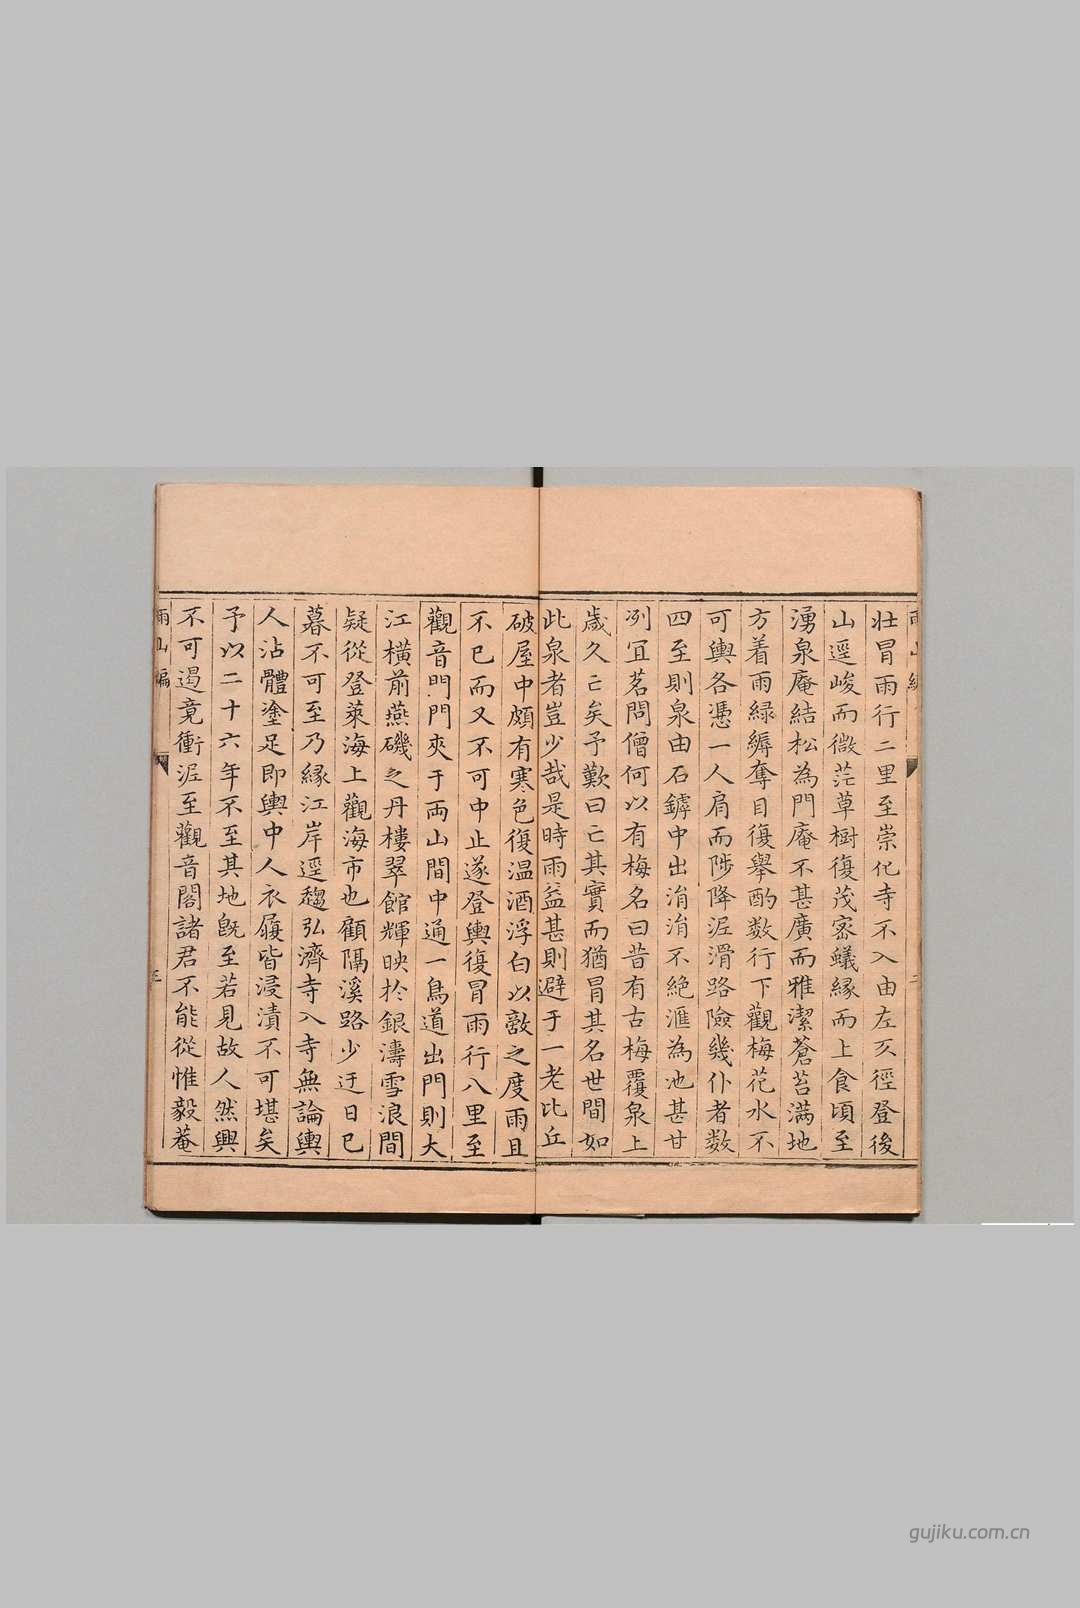 壯冒雨行二里至崇化寺不入由左又徑登後
山逕峻而微茫草樹復茂密蟻緣而上食頃至
湧泉庵結松為門庵不甚廣而雅潔蒼苔满地
方着雨緑縟奪目復舉酌数行下觀梅花水不
可輿各憑一人肩而陟降泥滑路險幾仆者数
四至則泉由石罅中出涓涓不絶滙為池甚甘
冽冝茗問僧何以有梅名曰昔有古梅覆泉上
歳久亡矣予歎曰亡其實而猶冒其名世間如
此泉者豈少哉是時雨益甚則避于一老比丘
破屋中頗有寒色復温酒浮白以敵之度雨且
不已而又不可中止遂登輿復冒雨行八里至
觀音門門夾于両山間中通一鳥道出門則大
江橫前燕磯之丹樓翠館輝映扵銀濤雪浪間
疑從登萊海上觀海市也顧隔溪路少迂日已
暮不可至乃緣江岸逕趨弘濟寺入寺無論輿
人沾體塗足即輿中人衣履皆浸漬不可堪矣
予以二十六年不至其地旣至若見故人然興
不可遏竟衝泥至觀音閣諸君不能從惟毅菴
雨山編
三